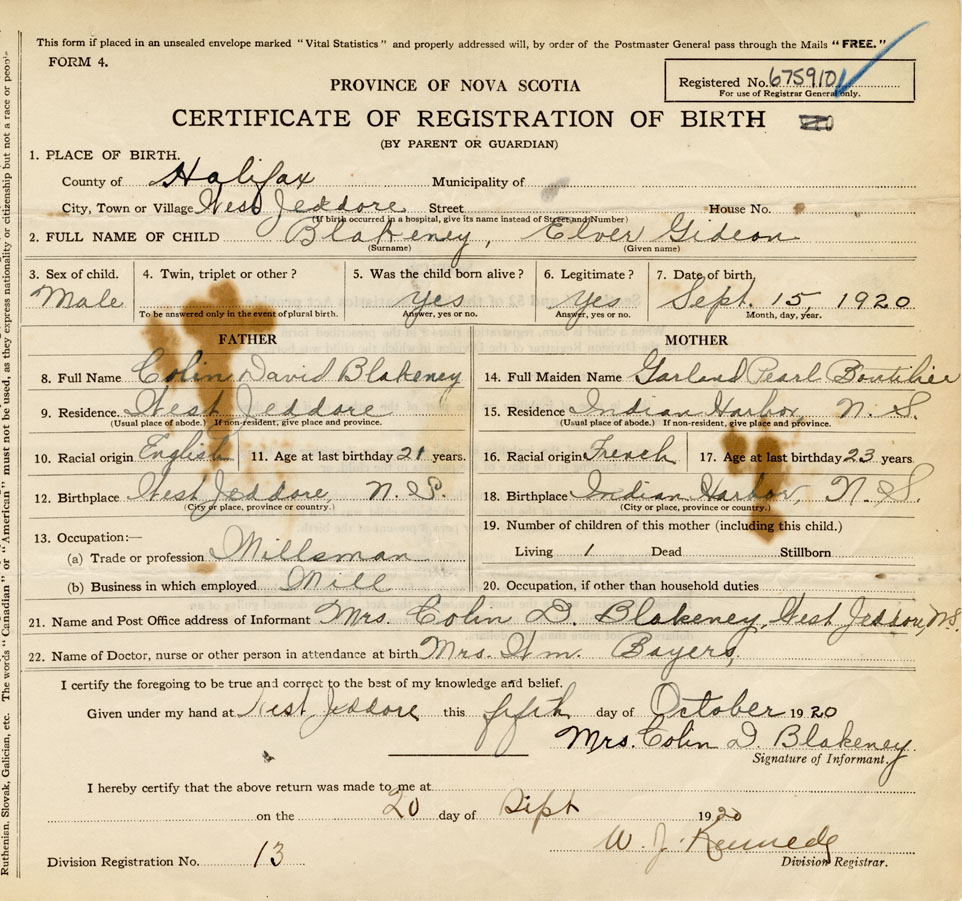 This form if placed in an unsealed envelope marked "Vital Statistics" and properly addressed will, by order of the Postmaster General pass through the Mails "FREE."
FORM 4.
Registered No. 675910
For use of Registrar General only.
PROVINCE OF NOVA SCOTIA
CERTIFICATE OF REGISTRATION OF BIRTH
(BY PARENT OR GUARDIAN)
1. PLACE OF BIRTH.
County of Halifax Municipality of
City, Town or Village West Jeddore Street House No.
(If birth occurred in a hospital, give its name instead of Street and Number)
2. FULL NAME OF CHILD Blakeney, Elver Gideon
(Surname) (Given name)
3. Sex of child. 4. Twin, triplet or other? 5. Was the child born alive? 6. Legitimate? 7. Date of birth,
Male Yes Yes Sept. 15, 1920
To be answered only in the event of plural birth. Answer, yes or no. Answer, yes or no. Month, day, year.
FATHER
8. Full Name Colin David Blakeney
9. Residence West Jeddore
(Usual place of abode.) If non-resident, give place and province.
10. Racial origin English 11. Age at last birthday 21 years.
12. Birthplace West Jeddore, N.S.
(City or place, province or country.)
13. Occupation:—
(a) Trade or profession Millsman
(b) Business in which employed Mill
MOTHER
14. Full Maiden Name Garland Pearl Boutilier
15. Residence Indian Harbor, N.S.
(Usual place of abode.) If non-resident, give place and province.
16. Racial origin French 17. Age at last birthday 23 years
18. Birthplace Indian Harbor, N.S.
(City or place, province or country.)
19. Number of children of this mother (including this child.)
Living 1 Dead Stillborn
20. Occupation, if other than household duties
21. Name and Post Office address of Informant Mrs. Colin D. Blakeney, West Jeddore, N.S.
22. Name of Doctor, nurse or other person in attendance at birth Mrs. Wm. Bayers,
I certify the foregoing to be true and correct to the best of my knowledge and belief.
Given under my hand at West Jeddore this fifth day of October 1920
Mrs. Colin D. Blakeney.
Signature of Informant.
I hereby certify that the above return was made to me at
on the 20 day of Sept 1920
W. J. Kennedy
Division Registrar.
Division Registration No. 13
Ruthenian, Slovak, Galician, etc. The words "Canadian" or "American" must not be used, as they express nationality or citizenship but not a race or people